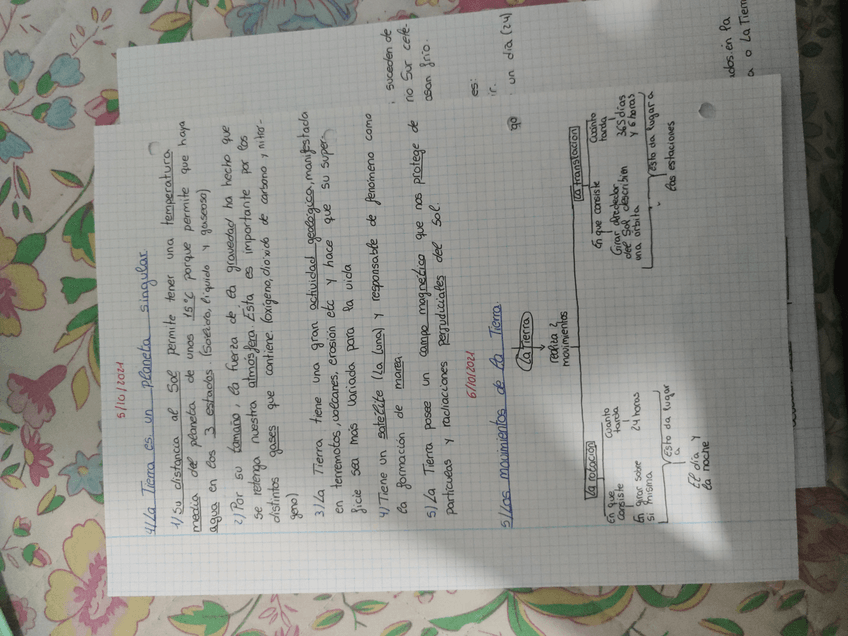 5/10/2021
4/La Tierra es un planeta singular
1) Su distancia al Sol permite tener una temperatura
media del planeta de unos 15°C porque permite que haya
agua en los 3 estados (Solido, liquido y gaseoso)
2) Por su tamaño, la fuerza de la gravedad ha hecho que
se retenga nuestra atmósfera Esta es importante por los
distintos gases que contiene. (oxígeno, dioxido de carbono y nitro-
geno)
3) La Tierra tiene una gran actividad geológica, manifestada
en terremotos, volcanes, erosión etc y hace que su super-
ficie sea más variada para la vida
4) Tiene un satélite (la luna) y responsable de fenómeno como
la formación de marea
5) La Tierra posee un campo magnético que nos protege de
particulas y radiaciones perjudiciales del Sol.
6/10/2021
5/Los movimientos de la Tierra
La tierra
realiza 2
movimientos
La rotación
En que
consiste
En girar sobre
si misma
cuanto
tarda
24 horas
esto da lugar
a
El día y
la noche
La translación
En que consiste
Girar alrededor
del Sol describien
una orbita
Cuánto
tarda
365 días
y 6 horas
esto da lugar a
las estaciones
suceden de
no Sur cele-
osan frío.
es:
ir.
un día (24)
go
ados en la
a o la Tierra